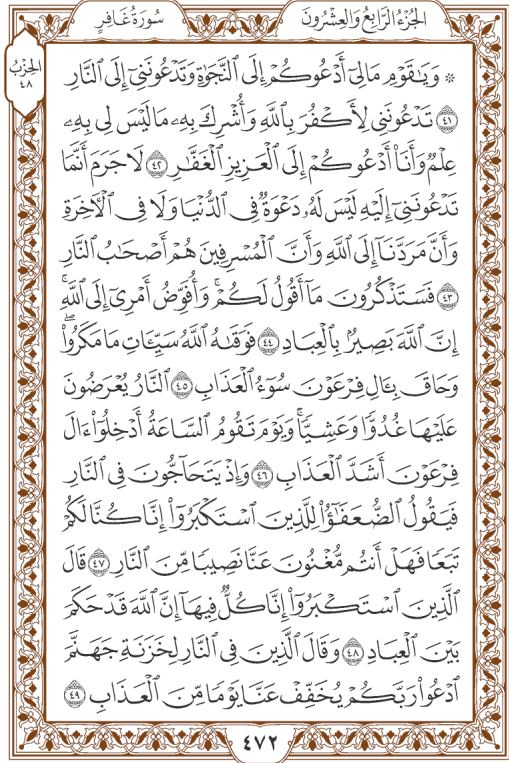 الجُزْءُ الرَّابِعُ وَالعِشْرُونَ
سُورَةُ غَافِرٍ
الحِزْبُ
٤٨
۞ وَيَٰقَوْمِ مَا لِيٓ أَدْعُوكُمْ إِلَى ٱلنَّجَوٰةِ وَتَدْعُونَنِيٓ إِلَى ٱلنَّارِ
٤١ تَدْعُونَنِي لِأَكْفُرَ بِٱللَّهِ وَأُشْرِكَ بِهِۦ مَا لَيْسَ لِي بِهِۦ
عِلْمٌ وَأَنَا۠ أَدْعُوكُمْ إِلَى ٱلْعَزِيزِ ٱلْغَفَّٰرِ ٤٢ لَا جَرَمَ أَنَّمَا
تَدْعُونَنِيٓ إِلَيْهِ لَيْسَ لَهُۥ دَعْوَةٌ فِي ٱلدُّنْيَا وَلَا فِي ٱلْأٓخِرَةِ
وَأَنَّ مَرَدَّنَآ إِلَى ٱللَّهِ وَأَنَّ ٱلْمُسْرِفِينَ هُمْ أَصْحَٰبُ ٱلنَّارِ
٤٣ فَسَتَذْكُرُونَ مَآ أَقُولُ لَكُمْۚ وَأُفَوِّضُ أَمْرِيٓ إِلَى ٱللَّهِۚ
إِنَّ ٱللَّهَ بَصِيرٌۢ بِٱلْعِبَادِ ٤٤ فَوَقَىٰهُ ٱللَّهُ سَيِّـَٔاتِ مَا مَكَرُوا۟ۖ
وَحَاقَ بِـَٔالِ فِرْعَوْنَ سُوٓءُ ٱلْعَذَابِ ٤٥ ٱلنَّارُ يُعْرَضُونَ
عَلَيْهَا غُدُوًّا وَعَشِيًّاۚ وَيَوْمَ تَقُومُ ٱلسَّاعَةُ أَدْخِلُوٓا۟ ءَالَ
فِرْعَوْنَ أَشَدَّ ٱلْعَذَابِ ٤٦ وَإِذْ يَتَحَآجُّونَ فِي ٱلنَّارِ
فَيَقُولُ ٱلضُّعَفَٰٓؤُا۟ لِلَّذِينَ ٱسْتَكْبَرُوٓا۟ إِنَّا كُنَّا لَكُمْ
تَبَعًا فَهَلْ أَنتُم مُّغْنُونَ عَنَّا نَصِيبًا مِّنَ ٱلنَّارِ ٤٧ قَالَ
ٱلَّذِينَ ٱسْتَكْبَرُوٓا۟ إِنَّا كُلٌّ فِيهَآ إِنَّ ٱللَّهَ قَدْ حَكَمَ
بَيْنَ ٱلْعِبَادِ ٤٨ وَقَالَ ٱلَّذِينَ فِي ٱلنَّارِ لِخَزَنَةِ جَهَنَّمَ
ٱدْعُوا۟ رَبَّكُمْ يُخَفِّفْ عَنَّا يَوْمًا مِّنَ ٱلْعَذَابِ ٤٩
٤٧٢